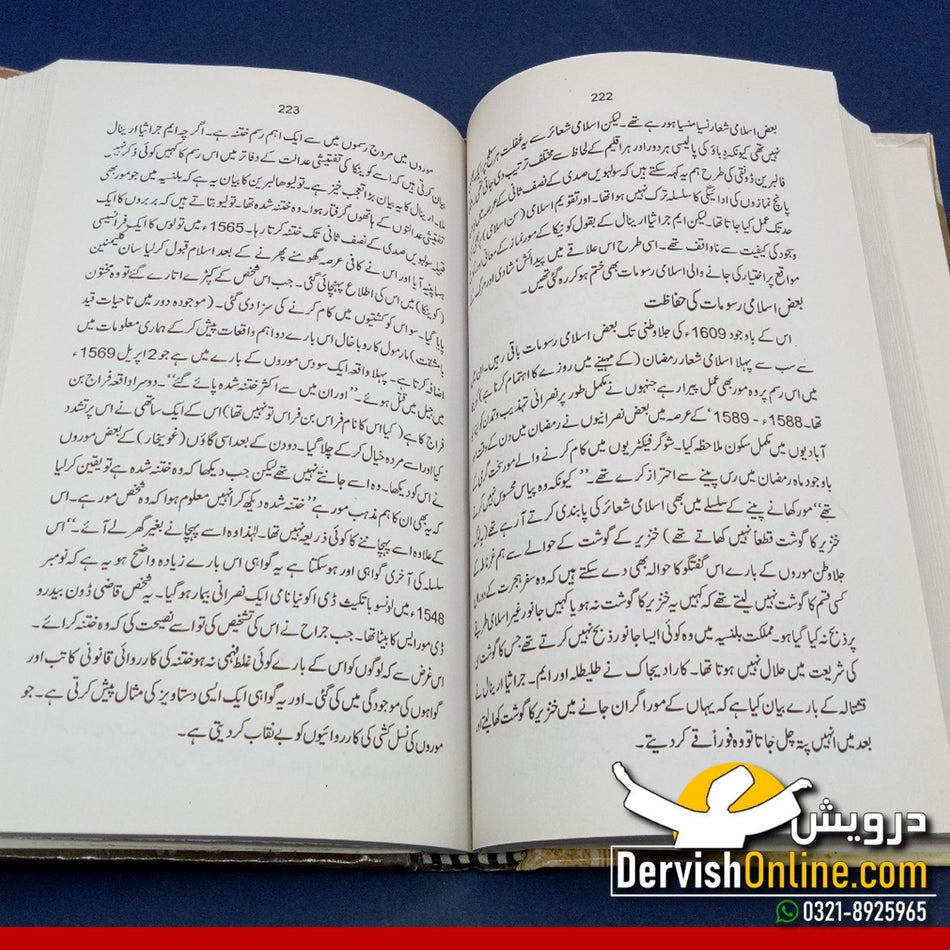 222
بعض اسلامی شعار نسیا منسیا ہو رہے تھے۔ لیکن اسلامی شعائر سے یہ غفلت ہر
نہیں تھی کیونکہ دباؤ کی پالیسی ہر دور اور ہر اقلیم کے لحاظ سے مختلف ترتیب دی جاتی
فالبرین ڈوثقی کی طرح ہم یہ کہہ سکتے ہیں کہ سولہویں صدی کے نصف ثانی تک
پانچ نمازوں کی ادائیگی کا سلسلہ ترک نہیں ہوا تھا۔ اور تقویم اسلامی (سن اسلامی)
حد تک عمل کیا جاتا تھا۔ لیکن ایم جراثیا ارینال کے بقول کونیکا کے مور نماز کے معانی
وجود کی کیفیت سے ناواقف تھے۔ اسی طرح اس علاقے میں پیدائش، شادی اور مرگ کے
مواقع پر اختیار کی جانے والی اسلامی رسومات بھی ختم ہو کر رہ گئی تھیں۔
بعض اسلامی رسومات کی حفاظت
اس کے باوجود 1609ء کی جلاوطنی تک بعض اسلامی رسومات باقی رہیں۔ ان
سے سب سے پہلا اسلامی شعار رمضان (کے مہینے میں روزے کا اہتمام کرنا ہے)
میں اس رسم پر وہ مور بھی عمل پیرا رہے جنہوں نے مکمل طور پر نصرانی تہذیب و تمدن کو
تھا۔ 1588ء - 1589ء کے عرصہ میں بعض نصرانیوں نے رمضان میں دن کے وقت
آبادیوں میں مکمل سکون ملاحظہ کیا۔ شوگر فیکٹریوں میں کام کرنے والے مور سخت گرمی کے
باوجود ماہ رمضان میں رس پینے سے احتراز کرے تھے۔ ”کیونکہ وہ پیاس محسوس نہیں کرتے
تھے“ مور کھانے پینے کے سلسلے میں بھی اسلامی شعائر کی پابندی کرتے آ رہے تھے
خنزیر کا گوشت قطعاً نہیں کھاتے تھے) خنزیر کے گوشت کے حوالے سے ہم غرناطہ کے
جلاوطن موروں کے بارے اس گفتگو کا حوالہ بھی دے سکتے ہیں کہ وہ سفر ہجرت کے دوران
کسی قسم کا گوشت نہیں لیتے تھے کہ کہیں یہ خنزیر کا گوشت نہ ہو یا کہیں جانور غیر اسلامی طریقے
پر ذبح نہ کیا گیا ہو۔ مملکت بلنسیہ میں وہ کوئی ایسا جانور ذبح نہیں کرتے تھے جس کا گوشت ان
کی شریعت میں حلال نہیں ہوتا تھا۔ کاراد یجاک نے طلیطلہ اور ایم۔ جراثیا ارینال نے
قشتالہ کے بارے بیان کیا ہے کہ یہاں کے مور اگر ان جانے میں خنزیر کا گوشت کھا لیتے اور
بعد میں انہیں پتہ چل جاتا تو وہ فوراً قے کر دیتے۔
223
موروں میں مروج رسموں میں سے ایک اہم رسم ختنہ ہے۔ اگرچہ ایم جراثیا ارینال
بیان کرتی ہیں کہ اسے کوینکا کی تفتیشی عدالت کے دفاتر میں اس رسم کا کہیں کوئی ذکر نہیں
ملا۔ ارینال کا یہ بیان بڑا تعجب خیز ہے۔ تولیو ھالبرین کا بیان یہ ہے کہ بلنسیہ میں جو مور بھی
تفتیشی عدالتوں کے ہاتھوں گرفتار ہوا۔ وہ ختنہ شدہ تھا۔ تولیو بتاتے ہیں کہ بربروں کا ایک
قبیلہ سولہویں صدی کے نصف ثانی تک ختنہ کرتا رہا۔ 1565ء میں تولوس کا ایک فرانسیسی
ہسپانیہ آیا اور اس نے کافی عرصہ گھومنے پھرنے کے بعد اسلام قبول کر لیا سان کلیمنین
(کوینکا) میں اس کی اطلاع پہنچائی گئی۔ جب اس شخص کے کپڑے اتارے گئے تو وہ مختون
پایا گیا۔ سو اس کو کشتیوں میں کام کرنے کی سزا دی گئی۔ (موجودہ دور میں تاحیات قید
بامشقت) مارمول کاروباخال اس بارے دو اہم واقعات پیش کر کے ہماری معلومات میں
اضافہ کرتا ہے۔ پہلا واقعہ ایک سو دس موروں کے بارے میں ہے جو 2 اپریل 1569ء
میں جیل میں قتل ہوئے۔ ”اور ان میں سے اکثر ختنہ شدہ پائے گئے“۔ دوسرا واقعہ فراج بن
فراج کا ہے (کیا اس کا نام فراس بن فراس تو نہیں تھا) اس کے ایک ساتھی نے اس پر تشدد
کیا اور اسے مردہ خیال کر کے چلا گیا۔ دو دن کے بعد اسی گاؤں (غویخار) کے بعض موروں
نے اس کو دیکھا۔ وہ اسے جانتے نہیں تھے لیکن جب دیکھا کہ وہ ختنہ شدہ ہے تو یقین کر لیا
کہ یہ بھی ان کا ہم مذہب مور ہے ”ختنہ شدہ دیکھ کر انہیں معلوم ہوا کہ وہ شخص مور ہے۔ اس
کے علاوہ اسے پہچاننے کا کوئی ذریعہ نہیں تھا۔ لہٰذا وہ اسے پہچانے بغیر گھر لے آئے۔“ اس
سلسلہ کی آخری گواہی اور ہو سکتا ہے یہ گواہی اس بارے زیادہ واضح ہو یہ ہے کہ نومبر
1548ء میں لونسو باتکیث ڈی اکونیا نامی ایک نصرانی بیمار ہو گیا۔ یہ شخص قاضی ڈون بیدرو
ڈی مورالیس کا بیٹا تھا۔ جب جراح نے اس کی تشخیص کی تو اسے نصیحت کی کہ وہ ختنہ کرائے۔
اس غرض سے کہ لوگوں کو اس کے بارے کوئی غلط فہمی نہ ہو ختنہ کی کارروائی قانونی کاتب اور
گواہوں کی موجودگی میں کی گئی۔ اور یہ گواہی ایک ایسی دستاویز کی مثال پیش کرتی ہے۔ جو
موروں کی نسل کشی کی کارروائیوں کو بے نقاب کر دیتی ہے۔
درویش
DervishOnline.com
0321-8925965